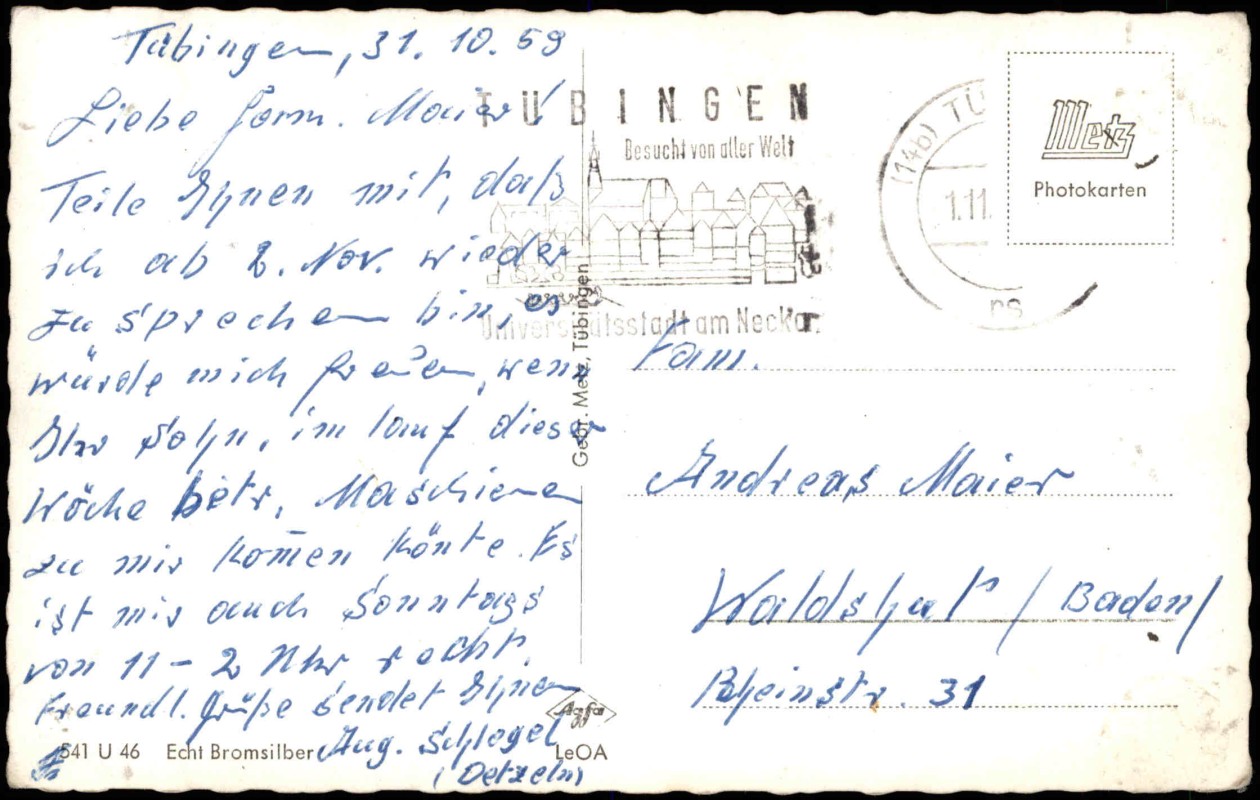 Tübingen, 31. 10. 59
Liebe Fam. Maier!
Teile Ihnen mit, daß
ich ab 2. Nov. wieder
zu sprechen bin, es
würde mich freuen, wenn
Ihr Sohn, im lauf dieser
Woche betr. Maschienen
zu mir kom̄en könte. Es
ist mir auch Sonntags
von 11 - 2 Uhr recht.
Freundl. Grüße sendet Ihnen
Aug. Schlogel
(Detzeln)
541 U 46 Echt Bromsilber
LeOA
Agfa
Gebr. Metz, Tübingen
TÜBINGEN
Besucht von aller Welt
Universitätsstadt am Neckar
(14b) TÜ
1.11.
rs
Metz
Photokarten
Fam.
Andreas Maier
Waldshut / Baden /
Rheinstr. 31